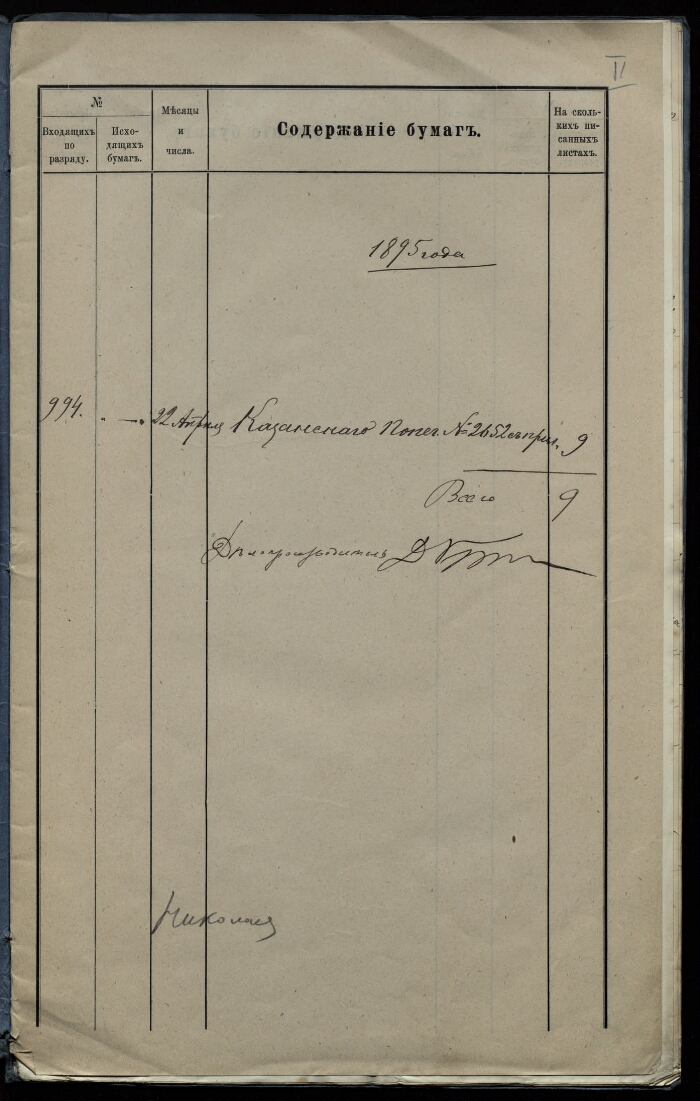 II
№
Входящихъ
по
разряду.
Исхо-
дящихъ
бумагъ.
Мѣсяцы
и
числа.
Содержаніе бумагъ.
На сколь-
кихъ пи-
санныхъ
листахъ.
1895 года
994. — 22 Апрѣля Казанскаго Попеч. № 2652 съ прил. 9
Всего 9
Дѣлопроизводитель Д
Николая